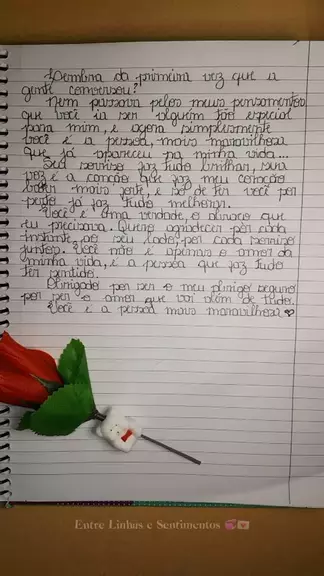 Lembra da primeira vez que a
gente conversou?
Nem passava pelos meus pensamentos
que você ia ser alguém tão especial
para mim, e agora simplesmente
você é a pessoa, mais maravilhosa
que já apareceu na minha vida...
Seu sorriso faz tudo brilhar, sua
voz é a canção que faz meu coração
bater mais forte, e só de ter você por
perto já faz tudo melhorar.
Você é uma verdade, o abraço que
eu precisava. Quero agradecer por cada
instante ao seu lado, por cada sorriso
juntos. Você não é apenas o amor da
minha vida, é a pessoa que faz tudo
ter sentido.
Obrigado por ser o meu abrigo seguro
por ser o amor que vai além de tudo.
Você é a pessoa mais maravilhosa ♥
Entre Linhas e Sentimentos 💞💌